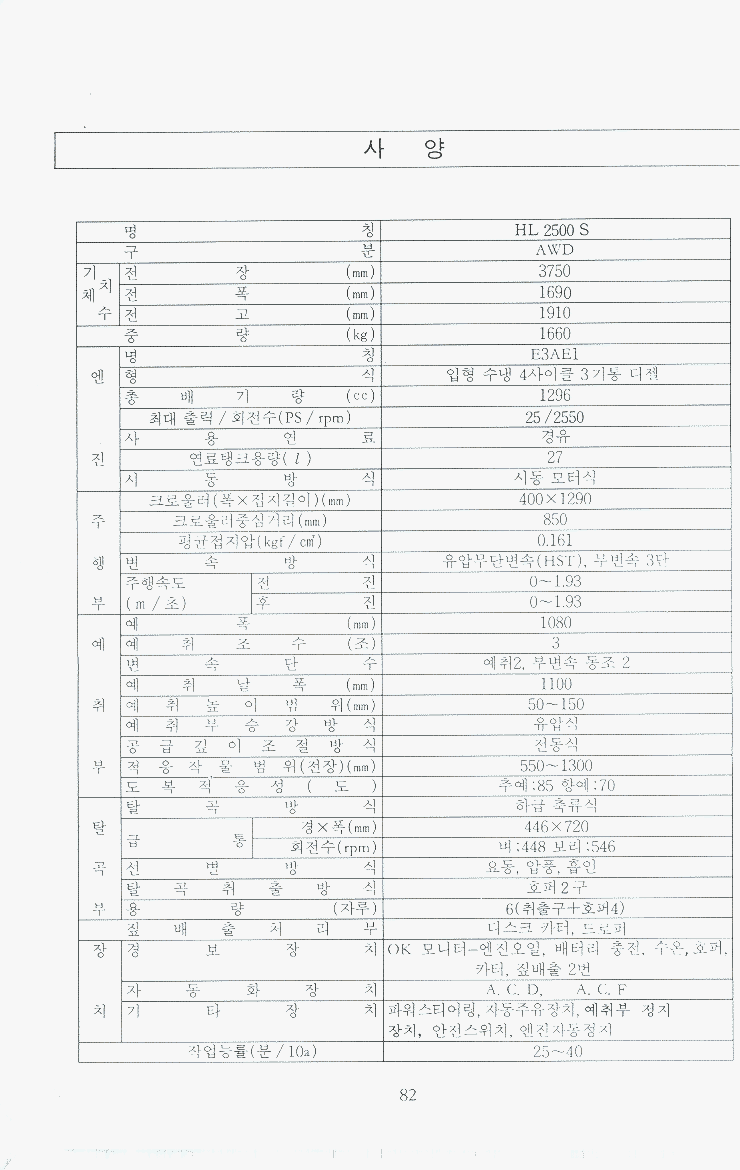 사 양
명 칭 HL 2500 S
구 분 AWD
기체 치수 전 장 (mm) 3750
전 폭 (mm) 1690
전 고 (mm) 1910
중 량 (kg) 1660
엔진 명 칭 E3AE1
형 식 입형 수냉 4사이클 3기통 디젤
총 배 기 량 (cc) 1296
최대 출력 / 회전수(PS / rpm) 25/2550
사 용 연 료 경유
연료탱크용량( l ) 27
시 동 방 식 시동 모터식
주행부 크로울러(폭×접지길이)(mm) 400×1290
크로울러중심거리(mm) 850
평균접지압(kgf / ㎠) 0.161
변 속 방 식 유압무단변속(HST), 부변속 3단
주행속도 전 진 0~1.93
( m / 초) 후 진 0~1.93
예취부 예 폭 (mm) 1080
예 취 조 수 (조) 3
변 속 단 수 예취2, 부변속 동조 2
예 취 날 폭 (mm) 1100
예 취 높 이 범 위(mm) 50~150
예 취 부 승 강 방 식 유압식
공 급 깊 이 조 절 방 식 전동식
적 응 작 물 범 위(전장)(mm) 550~1300
도 복 적 응 성 ( 도 ) 추예:85 향예:70
탈곡부 탈 곡 방 식 하급 축류식
급 통 경×폭(mm) 446×720
회전수(rpm) 벼:448 보리:546
선 별 방 식 요동, 압풍, 흡인
탈 곡 취 출 방 식 호퍼 2구
용 량 (자루) 6(취출구+호퍼4)
짚 배 출 처 리 부 디스크 카터, 드로퍼
장치 경 보 장 치 OK 모니터-엔진오일, 배터리 충전, 수온, 호퍼,
카터, 짚배출 2번
자 동 화 장 치 A. C. D, A. C. F
기 타 장 치 파워스티어링, 자동주유장치, 예취부 정지
장치, 안전스위치, 엔진자동정지
작업능률(분 / 10a) 25~40
82